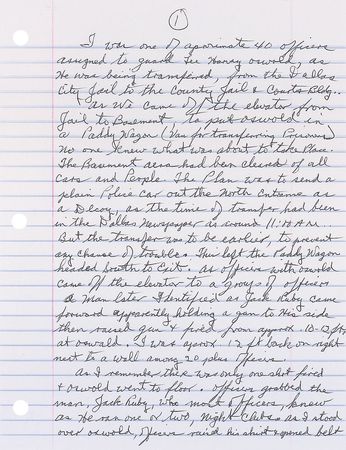 1
I was one of aproximate 40 officers
assigned to guard Lee Harvey oswold, as
He was being transfered, from the Dallas
City Jail to the County Jail & Courts Bldg..
As we came off the elevator from
Jail to Basement, to put oswold in
a Paddy Wagon (Van for transferring Prisoners)
no one knew what was about to take Place.
The Basement area had been cleared of all
Cars and People. The Plan was to send a
plain Police Car out the North Entrance as
a Decoy, as the time of transfer had been
in the Dallas Newspaper as around 11:10 AM..
But the transfer was to be earlier, to prevent
any chance of trouble. This left the Paddy Wagon
headed South to Exit. as officers with oswold
came off the elevator to a group of officers
a Man later Identified as Jack Ruby came
forward apparently holding a gun to His side
then raised gun & fired from approx 10-12 ft,
at oswald. I was aprox 12 ft back on right
next to a wall among 20 plus officers.
As I remember there was only one shot fired
& oswold went to floor. officers grabbed the
man, Jack Ruby, who most officers, knew
as He ran one or two, Night Clubs. as I stood
over oswold, officers raised his shirt & opened belt